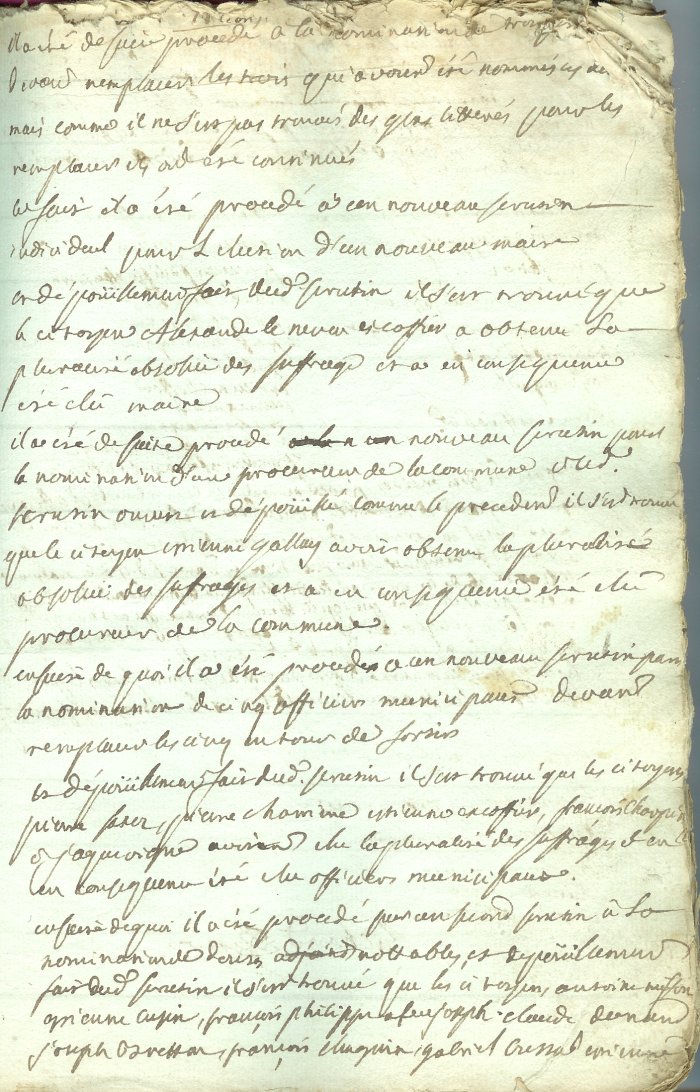 il a été de suite procedé à la nomination de trois
devant remplacer les trois qui avoient été nommés
mais comme il ne s'est pas trouvés des gens lettrés pour les
remplacer ils ont été continués
ce fait il a été procedé à un nouveau scrutin
individuel pour l'election d'un nouveau maire
et dépoüillement fait dud. scrutin il s'est trouvé que
le citoyen Alexandre le neveu escoffier a obtenu la
pluralité absolüe des suffrages et a en consequence
été élu maire
il a été de suite procédé nouveau scrutin pour
la nomination d'un procureur de la commune et led.
scrutin ouvert et dépoüillé comme le precedent il s'est trouvé
que le citoyen etienne gallay avoit obtenu la pluralité
absolüe des suffrages et a en consequence été élu
procureur de la commune.
ensuite de quoi il a été procedé a un nouveau scrutin pour
la nomination de cinq officiers municipaux devant
remplacer les cinq en tour de sortir
et dépoüillement fait dud. scrutin il s'est trouvé que les citoyens
pierre pierre etienne escoffier, françois
& avoient la pluralité des suffrages et
en consequence été élu officiers municipaux.
ensuite de quoi il a été procedé par un second scrutin à la
nomination de nottables, et depoüillement
fait dud. scrutin il s'est trouvé que les citoyens antoine
etienne françois philippe joseph claude
joseph françois gabriel etienne